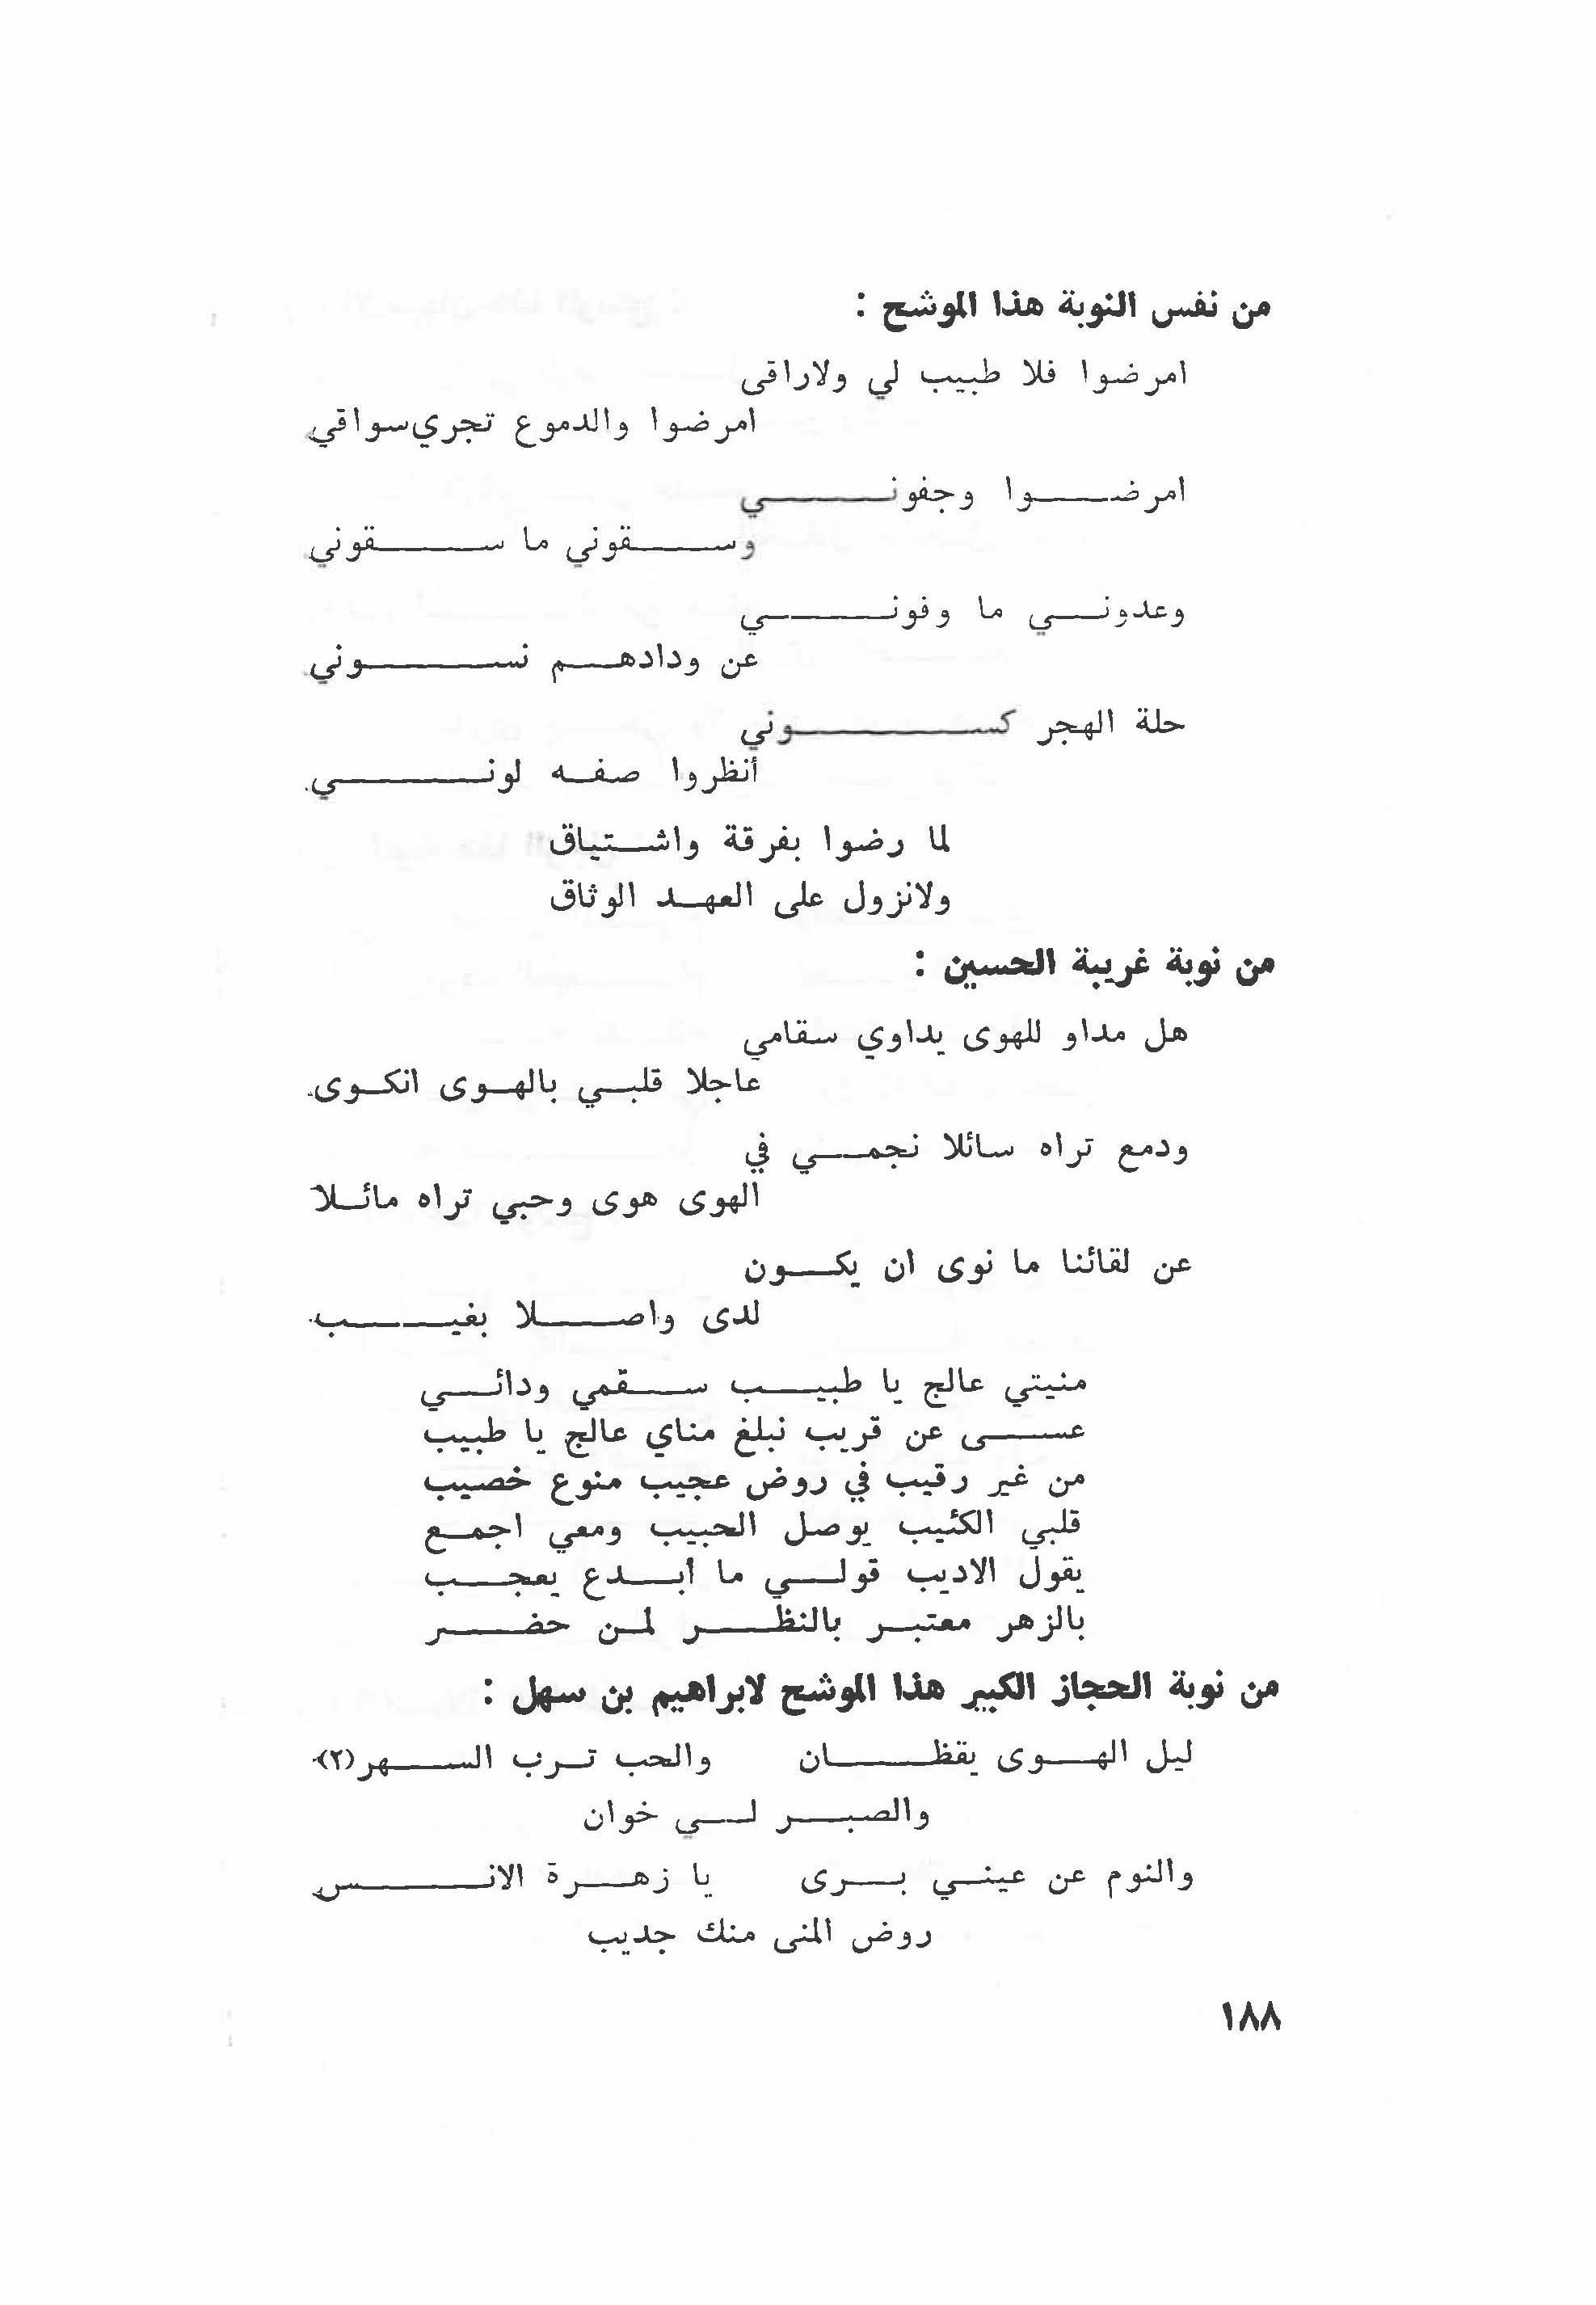 من نفس النوبة هذا الموشح :
امرضوا فلا طبيب لي ولاراقى
امرضوا والدموع تجري سواقي
امرضوا وجفوني
وسقوني ما سقوني
وعدوني ما وفوني
عن ودادهم نسوني
حلة الهجر كسوني
أنظروا صفه لوني
لما رضوا بفرقة واشتياق
ولانزول على العهد الوثاق
من نوبة غريبة الحسين :
هل مداو للهوى يداوي سقامي
عاجلا قلبي بالهوى انكوى
ودمع تراه سائلا نجمي في
الهوى هوى وحبي تراه مائلا
عن لقائنا ما نوى ان يكون
لدى واصلا بغيب
منيتي عالج يا طبيب سقمي ودائي
عسى عن قريب نبلغ مناي عالج يا طبيب
من غير رقيب في روض عجيب منوع خصيب
قلبي الكئيب يوصل الحبيب ومعي اجمع
يقول الاديب قولي ما أبدع يعجب
بالزهر معتبر بالنظر لمن حضر
من نوبة الحجاز الكبير هذا الموشح لابراهيم بن سهل :
ليل الهوى يقظان والحب ترب السهر(٢)
والصبر لي خوان
والنوم عن عيني برى يا زهرة الانس
روض المنى منك جديب
١٨٨